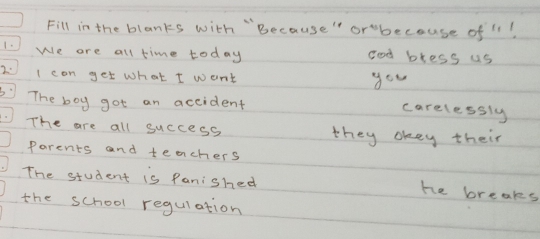 Fill in the blanks with "Because" or "because of"!
1. We are all time today God bless us
2. I can get what I want you
3. The boy got an accident carelessly
The are all success they okey their
Parents and teachers
The student is Panished he breaks
the school regulation